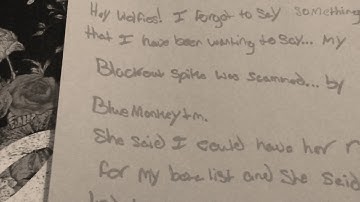 Hey Wolfies! I forgot to say something
that I have been wanting to say... my
Blackout spike was scammed... by
BlueMonkeytm.
She said I could have her r
for my beta list and she said